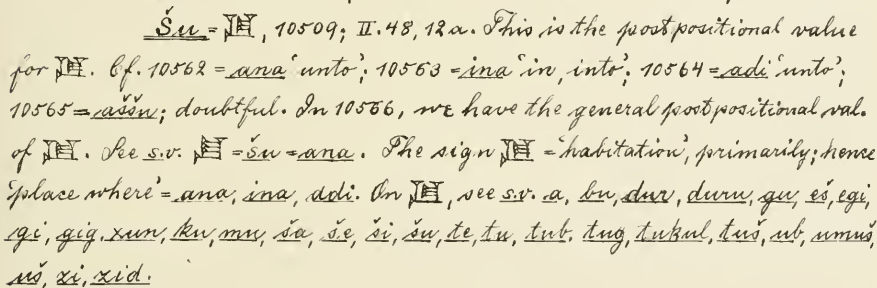 Šu = 𒂠, 10509; II. 48, 12 a. This is the postpositional value
for 𒂠. Cf. 10562 = ana 'unto'; 10563 = ina 'in, into'; 10564 = adi 'unto';
10565 = aššu; doubtful. In 10566, we have the general postpositional val.
of 𒂠. See s.v. = šu = ana. The sign 𒂠 = 'habitation', primarily; hence
'place where' = ana, ina, adi. On 𒂠, see s.v. a, bu, dur, duru, gu, eš, egi,
gi, gig, xun, ku, mu, ša, še, ši, šu, te, tu, tub, tug, tukul, tuš, ub, umuš,
uš, zi, zid.